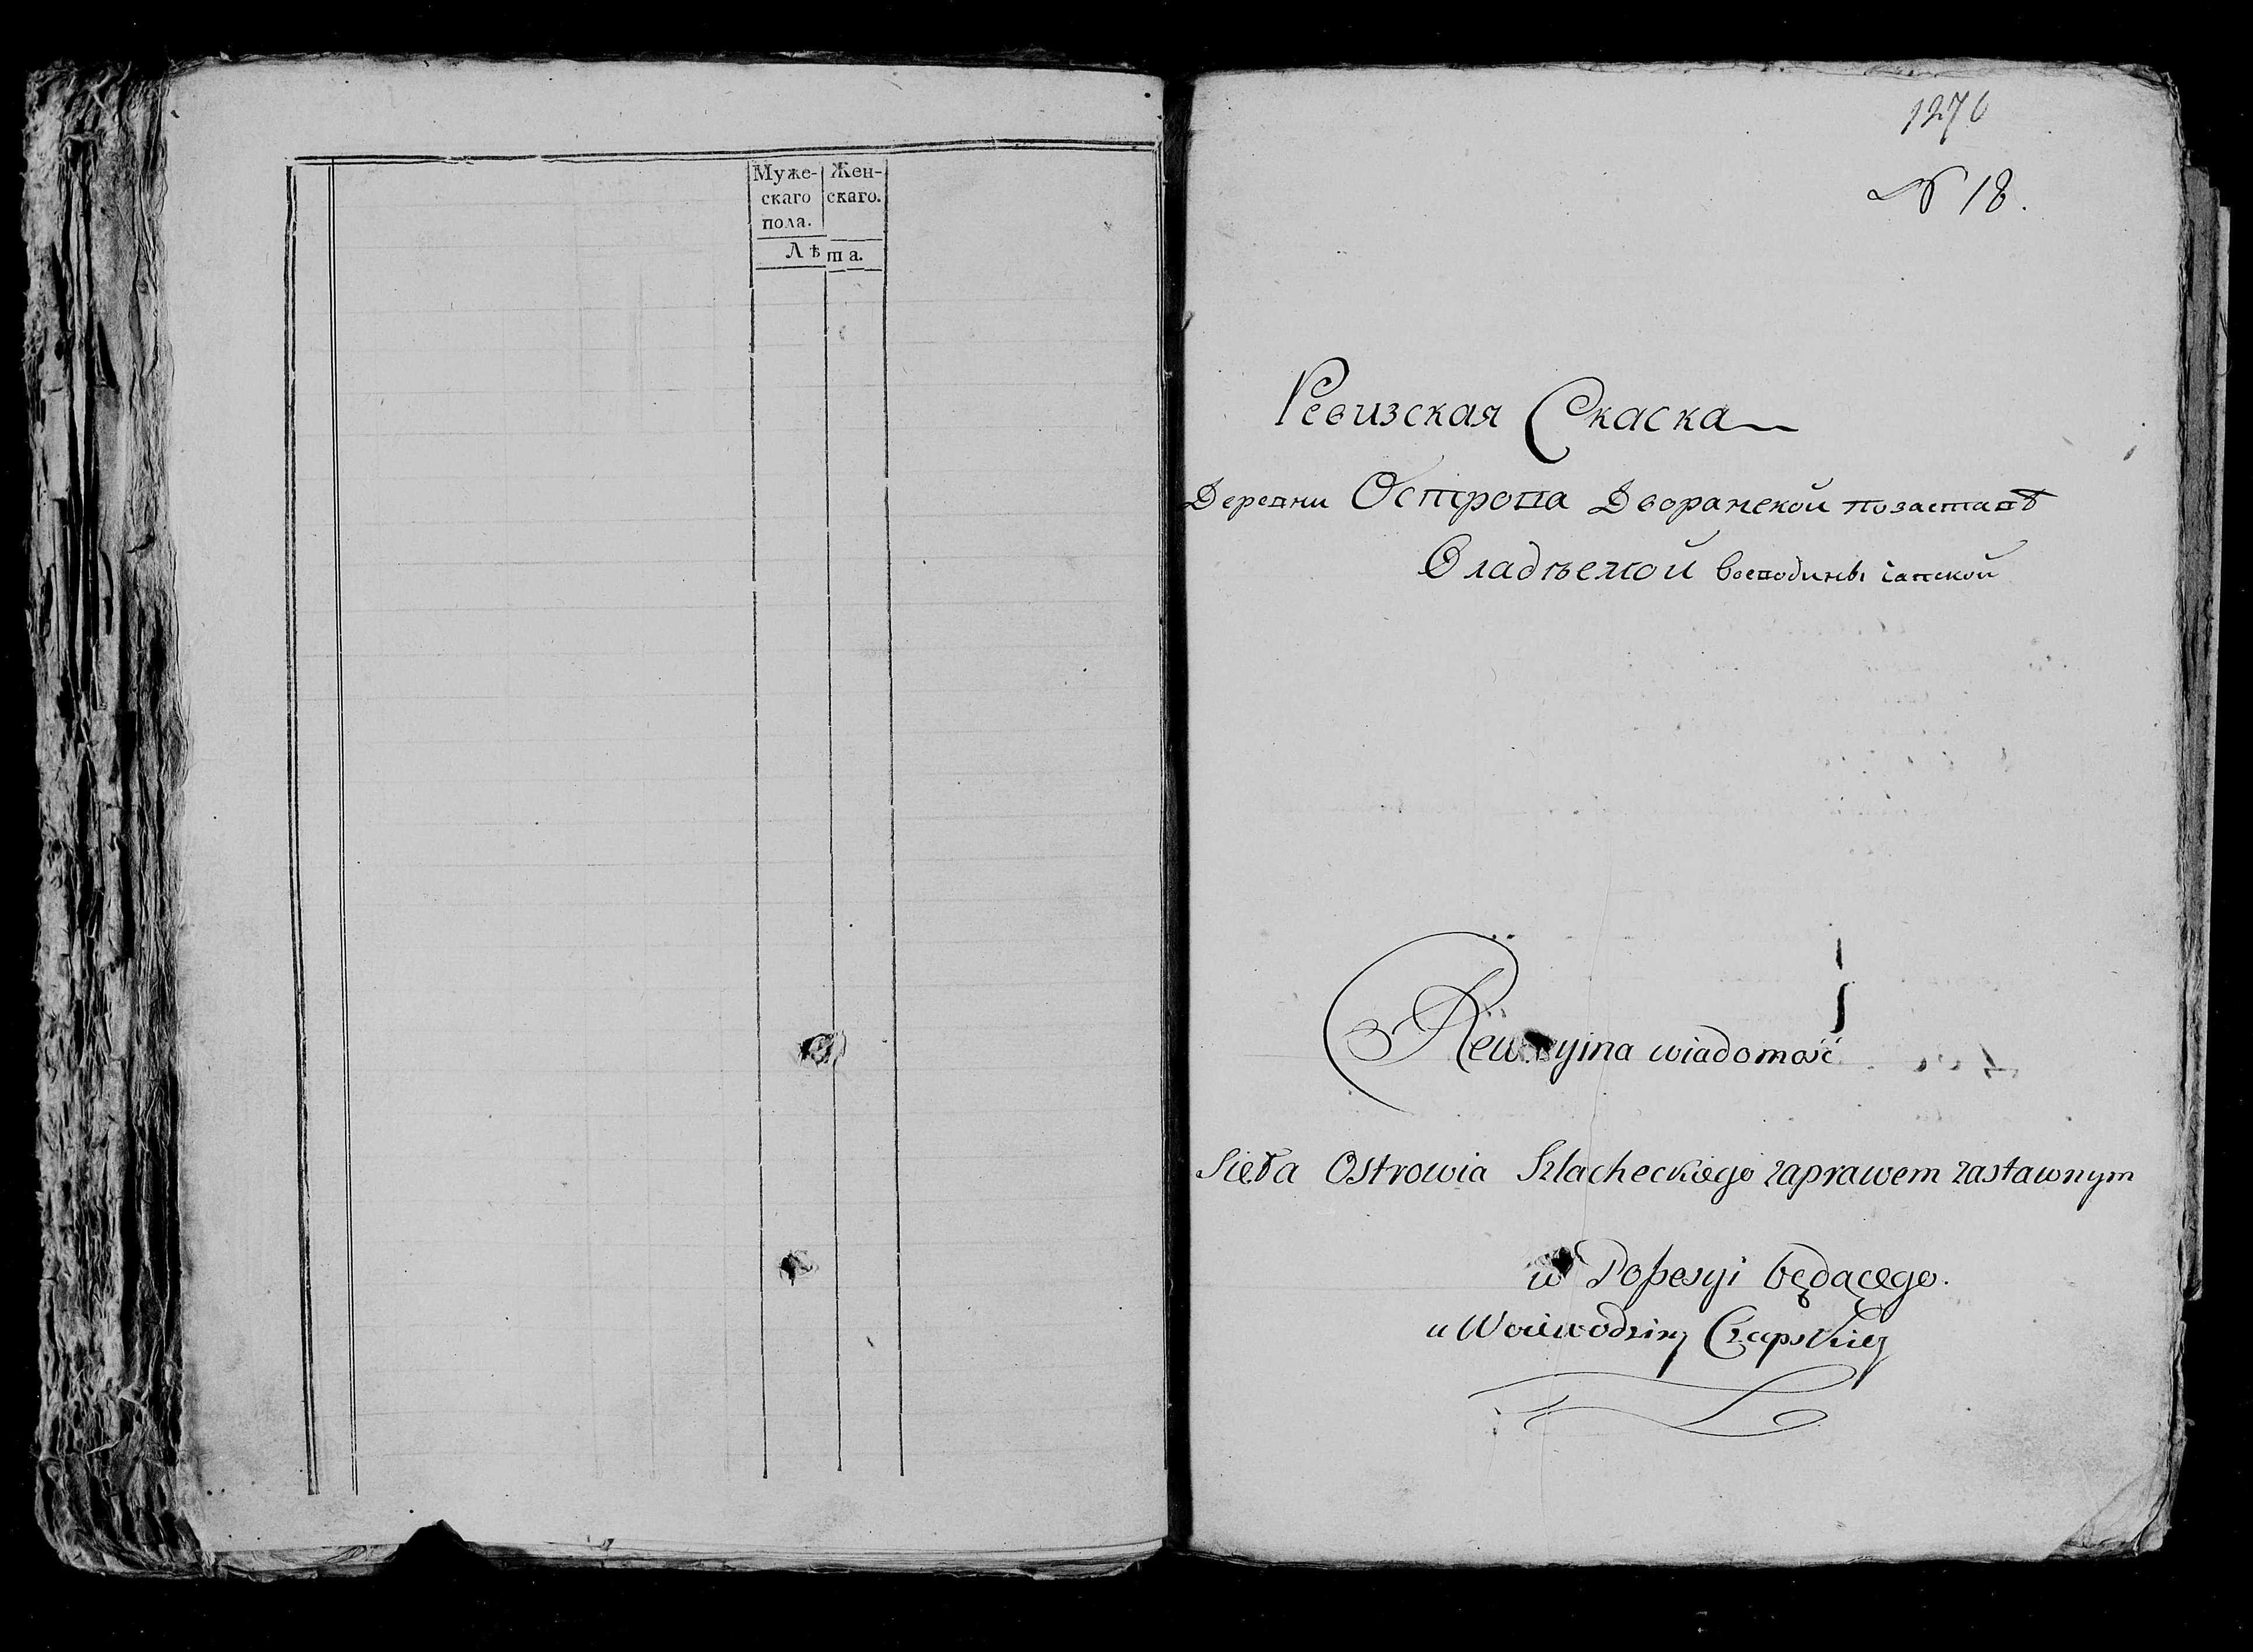 Муже- Жен-
скаго скаго.
пола.
Лѣта.
1276
№ 18.
Ревизская Скаска
Деревни Острова Дворанской позаставѣ
Владѣемой Господины Чапской
Rewizyina wiadomość
Sieła Ostrowia Szlacheckiego zaprawem zastawnym
w Possesyi będącego.
u Woiewodziny Czapskiey